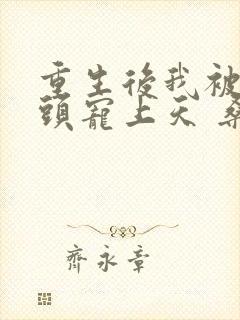 重生後我被
頭寵上天 桑
齊永章